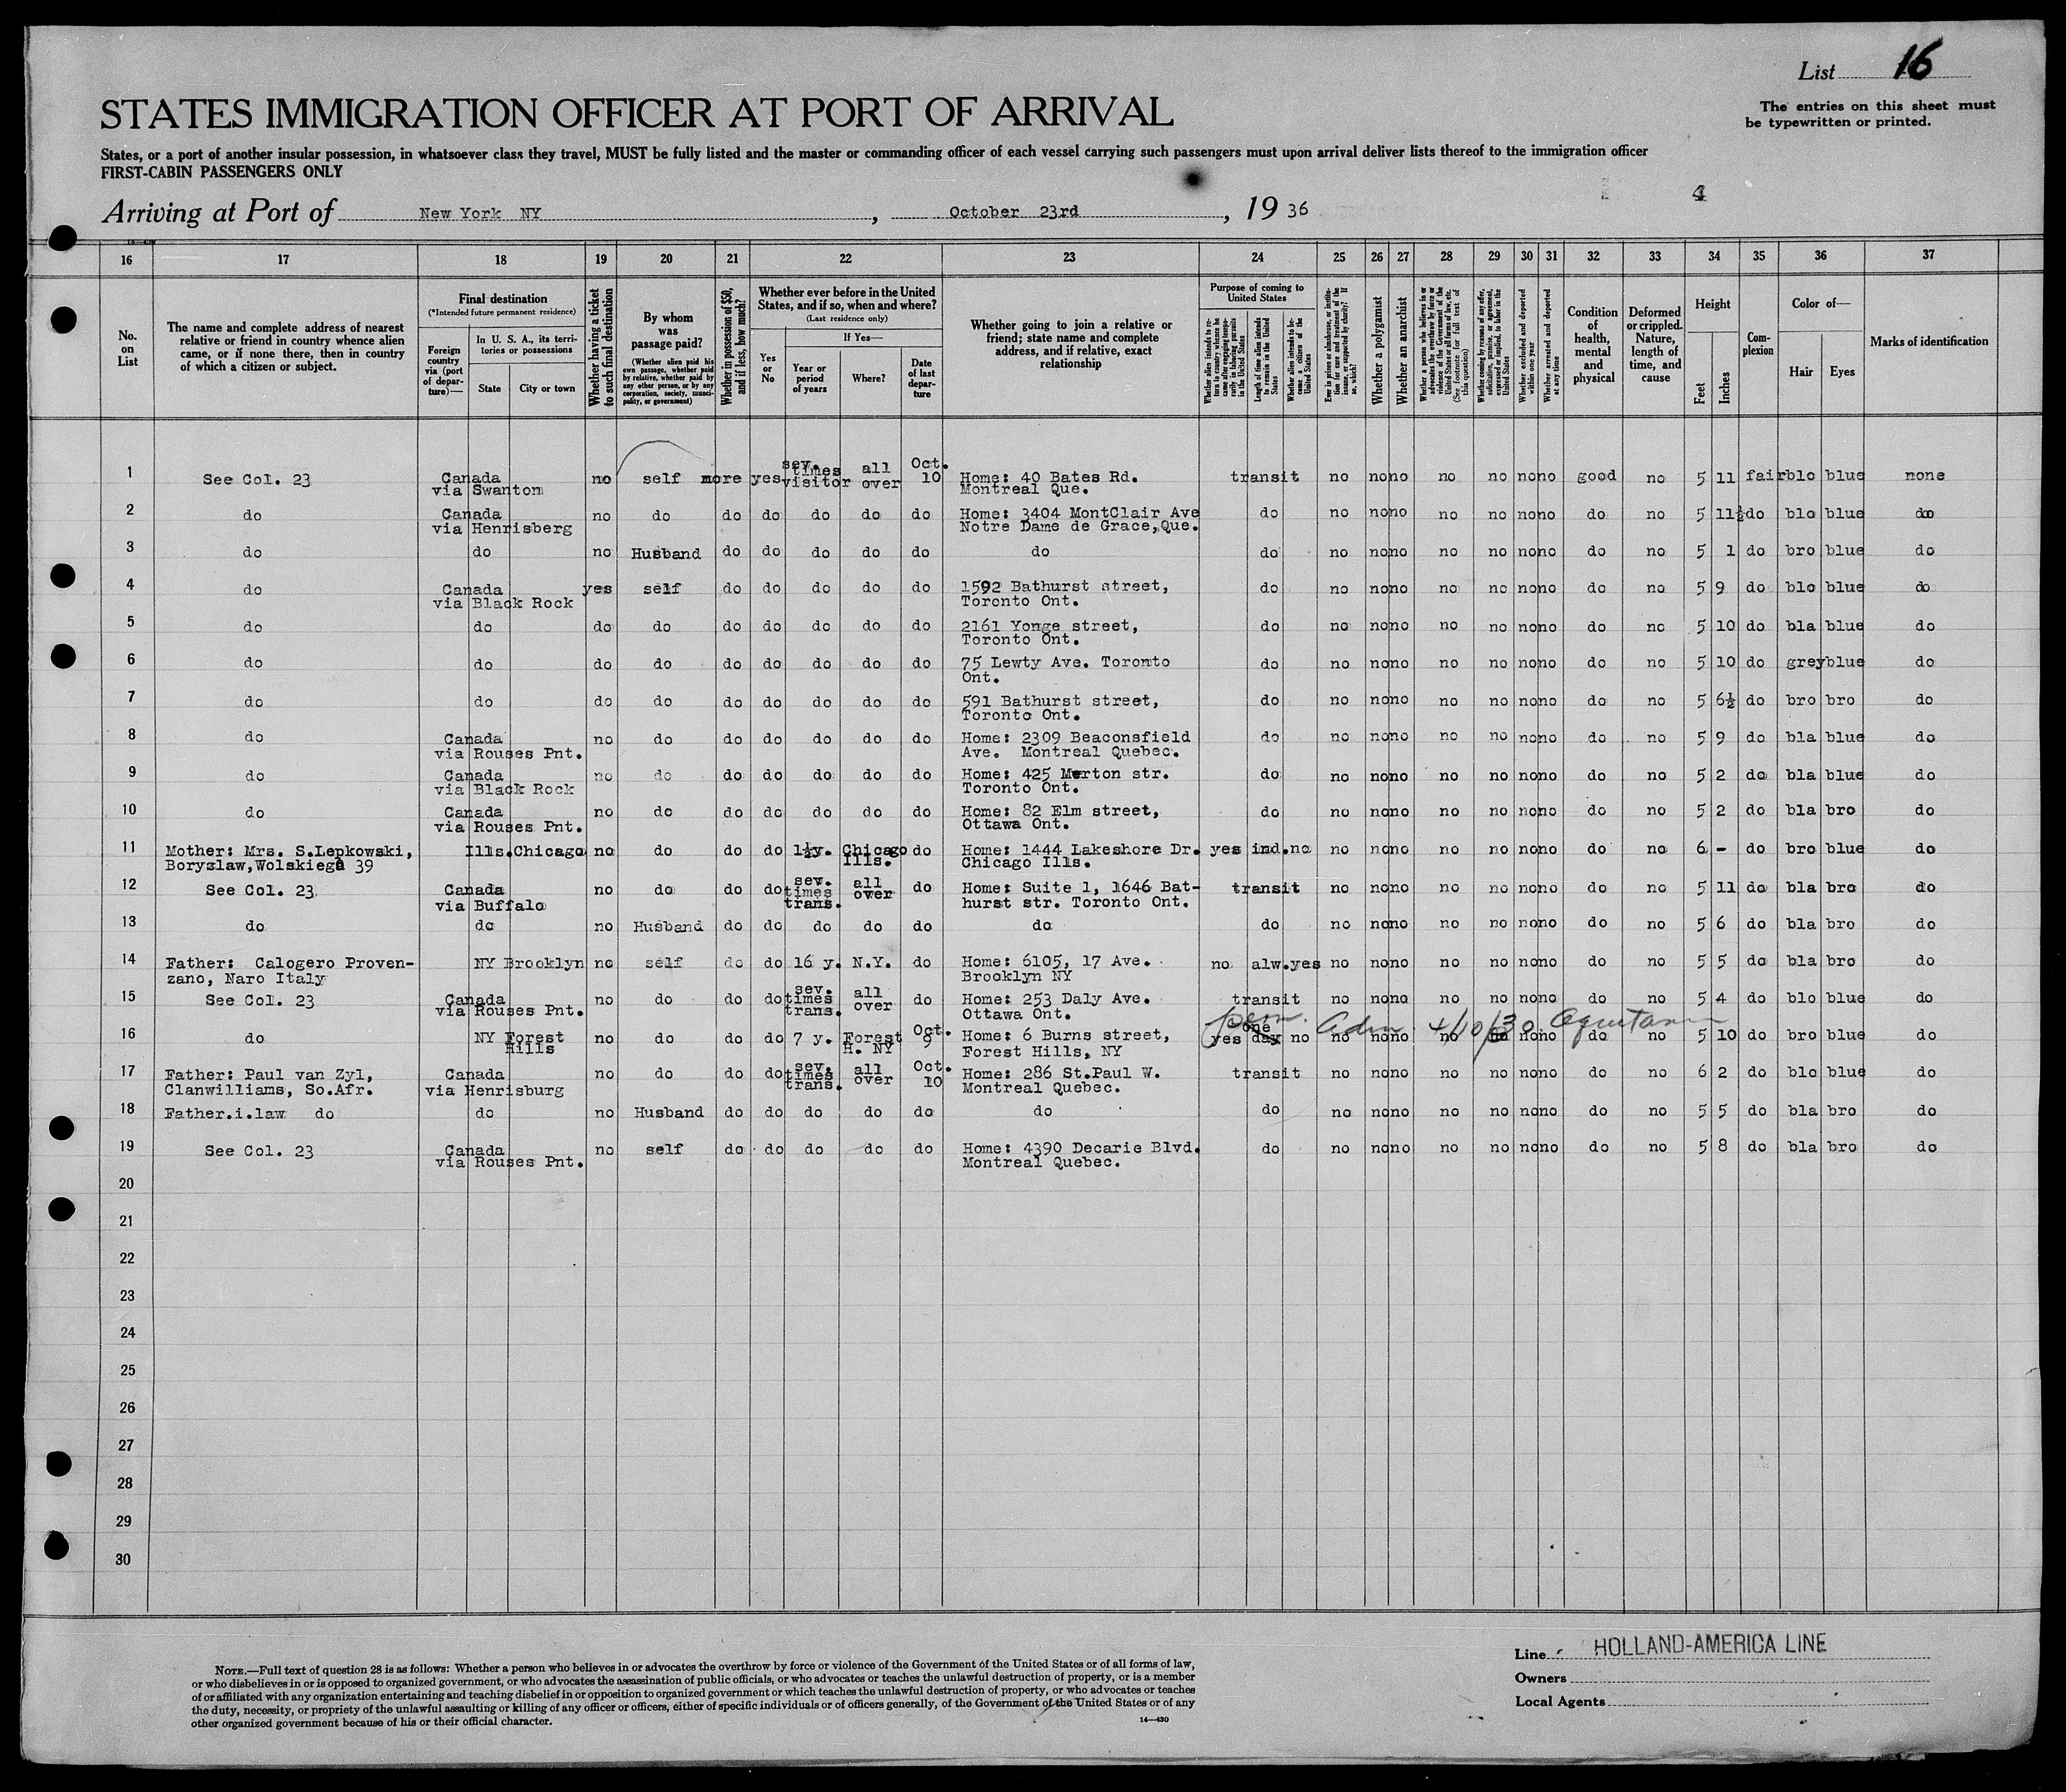 List 16
STATES IMMIGRATION OFFICER AT PORT OF ARRIVAL
The entries on this sheet must
be typewritten or printed.
States, or a port of another insular possession, in whatsoever class they travel, MUST be fully listed and the master or commanding officer of each vessel carrying such passengers must upon arrival deliver lists thereof to the immigration officer
FIRST-CABIN PASSENGERS ONLY
4
Arriving at Port of New York NY, October 23rd, 19 36
16 17 18 19 20 21 22 23 24 25 26 27 28 29 30 31 32 33 34 35 36 37
No. on List
The name and complete address of nearest relative or friend in country whence alien came, or if none there, then in country of which a citizen or subject.
Final destination
(*Intended future permanent residence)
Foreign country via (port of departure)—
In U. S. A., its territories or possessions
State
City or town
Whether having a ticket to such final destination
By whom was passage paid?
(Whether alien paid his own passage, whether paid by relative, whether paid by any other person, or by any corporation, society, municipality, or government)
Whether in possession of $50, and if less, how much?
Whether ever before in the United States, and if so, when and where?
(Last residence only)
Yes or No
If Yes—
Year or period of years
Where?
Date of last departure
Whether going to join a relative or friend; state name and complete address, and if relative, exact relationship
Purpose of coming to United States
Whether alien intends to return to country whence he came after engaging temporarily in laboring pursuits in the United States
Length of time alien intends to remain in the United States
Whether alien intends to become a citizen of the United States
Ever in prison or almshouse, or institution for care and treatment of the insane, or supported by charity? If so, which?
Whether a polygamist
Whether an anarchist
Whether a person who believes in or advocates the overthrow by force or violence of the Government of the United States or all forms of law, etc. (See footnote for full text of this question)
Whether coming by reasons of any offer, solicitation, promise, or agreement, expressed or implied, to labor in the United States
Whether excluded and deported within one year
Whether arrested and deported at any time
Condition of health, mental and physical
Deformed or crippled. Nature, length of time, and cause
Height
Feet
Inches
Complexion
Color of—
Hair
Eyes
Marks of identification
1 See Col. 23 Canada via Swanton no self more yes sev. times visitor all over Oct. 10 Home: 40 Bates Rd. Montreal Que. transit no no no no no no no good no 5 11 fair blo blue none
2 do Canada via Henrisberg no do do do do do do Home: 3404 MontClair Ave Notre Dame de Grace,Que. do no no no no no no no do no 5 11½ do blo blue do
3 do do no Husband do do do do do do do no no no no no no no do no 5 1 do bro blue do
4 do Canada via Black Rock yes self do do do do do 1592 Bathurst street, Toronto Ont. do no no no no no no no do no 5 9 do blo blue do
5 do do do do do do do do do 2161 Yonge street, Toronto Ont. do no no no no no no no do no 5 10 do bla blue do
6 do do do do do do do do do 75 Lewty Ave. Toronto Ont. do no no no no no no no do no 5 10 do grey blue do
7 do do do do do do do do do 591 Bathurst street, Toronto Ont. do no no no no no no no do no 5 6½ do bro bro do
8 do Canada via Rouses Pnt. no do do do do do do Home: 2309 Beaconsfield Ave. Montreal Quebec. do no no no no no no no do no 5 9 do bla blue do
9 do Canada via Black Rock no do do do do do do Home: 425 Merton str. Toronto Ont. do no no no no no no no do no 5 2 do bla blue do
10 do Canada via Rouses Pnt. no do do do do do do Home: 82 Elm street, Ottawa Ont. do no no no no no no no do no 5 2 do bla bro do
11 Mother: Mrs. S.Lepkowski, Boryzlaw,Wolskiega 39 Ills. Chicago no do do do 1½y. Chicago Ills. do Home: 1444 Lakeshore Dr. Chicago Ills. yes ind. no no no no no no no no do no 6 - do bro blue do
12 See Col. 23 Canada via Buffalo no do do do sev. times trans. all over do Home: Suite 1, 1646 Bathurst str. Toronto Ont. transit no no no no no no no do no 5 11 do bla bro do
13 do do no Husband do do do do do do do no no no no no no no do no 5 6 do bla bro do
14 Father: Calogero Provenzano, Naro Italy NY Brooklyn no self do do 16 y. N.Y. do Home: 6105, 17 Ave. Brooklyn NY no alw. yes no no no no no no no do no 5 5 do bla bro do
15 See Col. 23 Canada via Rouses Pnt. no do do do sev. times trans. all over do Home: 253 Daly Ave. Ottawa Ont. transit no no no no no no no do no 5 4 do blo blue do
perm. Adm. 4/10/30 Aquitania
16 do NY Forest Hills no do do do 7 y. Forest H. NY Oct. 9 Home: 6 Burns street, Forest Hills, NY yes one day no no no no no no no no do no 5 10 do bro blue do
17 Father: Paul van Zyl, Clanwilliams, So.Afr. Canada via Henrisburg no do do do sev. times trans. all over Oct. 10 Home: 286 St.Paul W. Montreal Quebec. transit no no no no no no no do no 6 2 do blo blue do
18 Father.i.law do do no Husband do do do do do do do no no no no no no no do no 5 5 do bla bro do
19 See Col. 23 Canada via Rouses Pnt. no self do do do do do Home: 4390 Decarie Blvd. Montreal Quebec. do no no no no no no no do no 5 8 do bla bro do
20
21
22
23
24
25
26
27
28
29
30
NOTE.—Full text of question 28 is as follows: Whether a person who believes in or advocates the overthrow by force or violence of the Government of the United States or of all forms of law,
or who disbelieves in or is opposed to organized government, or who advocates the assassination of public officials, or who advocates or teaches the unlawful destruction of property, or is a member
of or affiliated with any organization entertaining and teaching disbelief in or opposition to organized government or which teaches the unlawful destruction of property, or who advocates or teaches
the duty, necessity, or propriety of the unlawful assaulting or killing of any officer or officers, either of specific individuals or of officers generally, of the Government of the United States or of any
other organized government because of his or their official character.
14—430
Line HOLLAND-AMERICA LINE
Owners
Local Agents